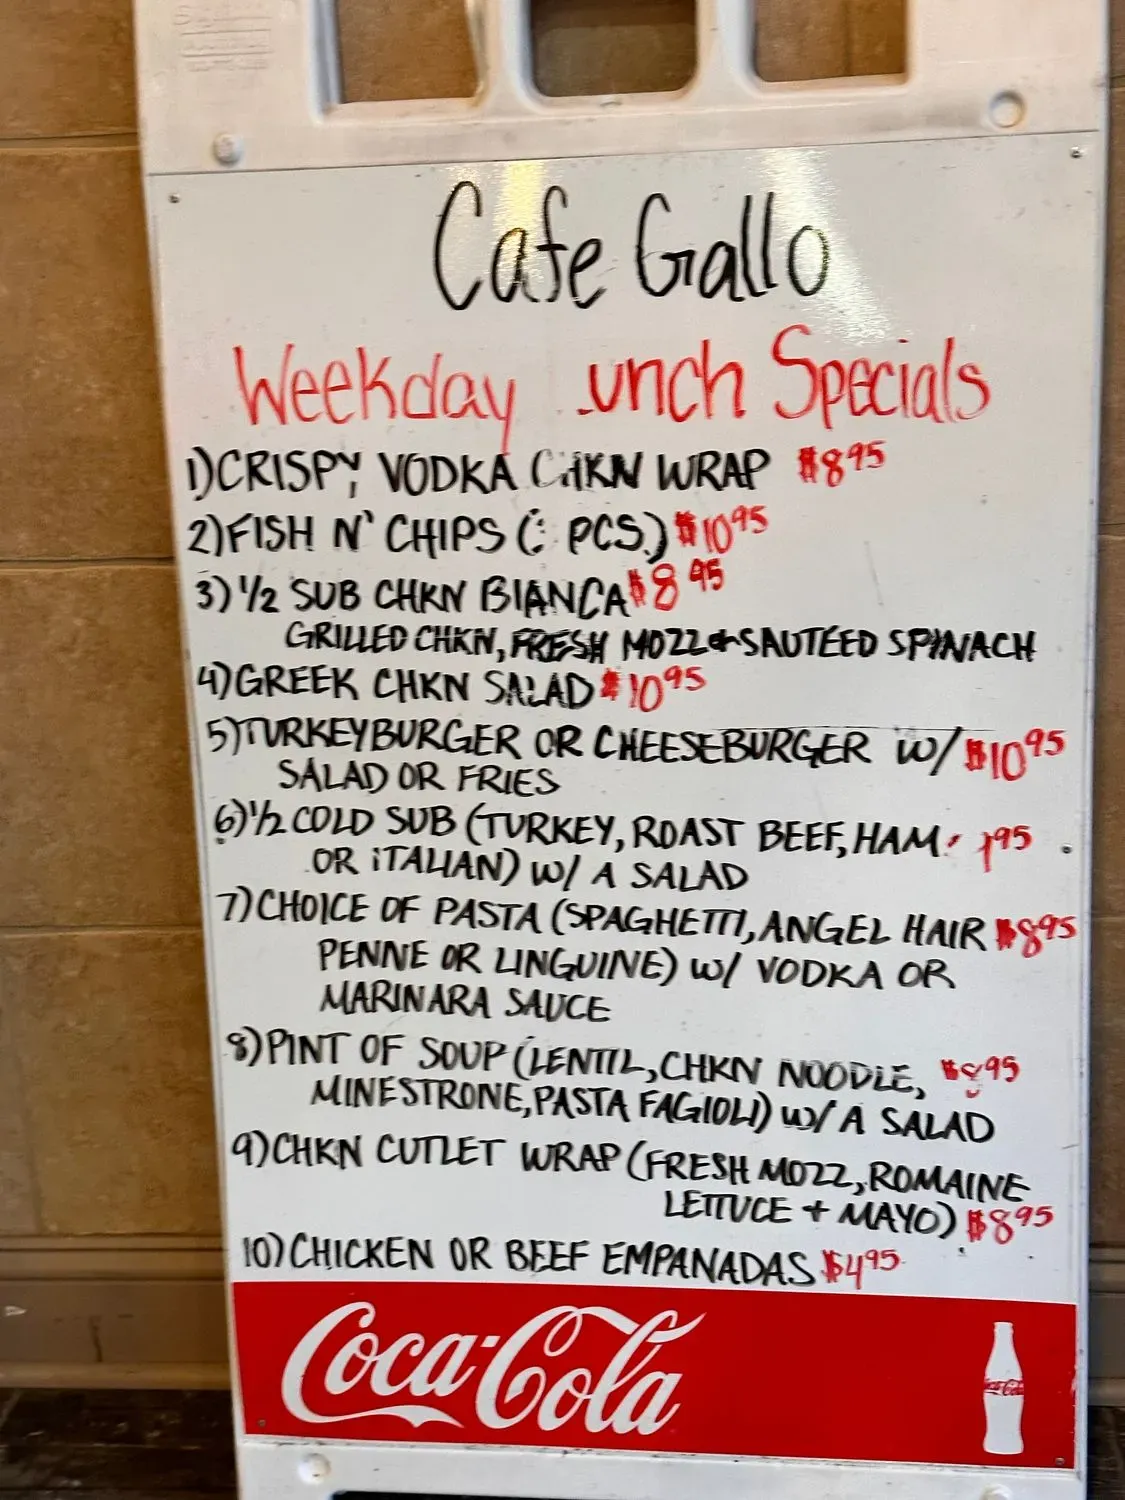 Cafe Gallo
Weekday unch Specials
1) CRISPY VODKA CHKN WRAP $8.95
2) FISH N' CHIPS ( PCS.) $10.95
3) 1/2 SUB CHKN BIANCA $8.95
GRILLED CHKN, FRESH MOZZ + SAUTEED SPINACH
4) GREEK CHKN SALAD $10.95
5) TURKEYBURGER OR CHEESEBURGER W/ $10.95
SALAD OR FRIES
6) 1/2 COLD SUB (TURKEY, ROAST BEEF, HAM
OR ITALIAN) W/ A SALAD
7) CHOICE OF PASTA (SPAGHETTI, ANGEL HAIR $8.95
PENNE OR LINGUINE) W/ VODKA OR
MARINARA SAUCE
8) PINT OF SOUP (LENTIL, CHKN NOODLE, $8.95
MINESTRONE, PASTA FAGIOLI) W/ A SALAD
9) CHKN CUTLET WRAP (FRESH MOZZ, ROMAINE
LETTUCE + MAYO) $8.95
10) CHICKEN OR BEEF EMPANADAS $4.95
Coca-Cola
Coca-Cola